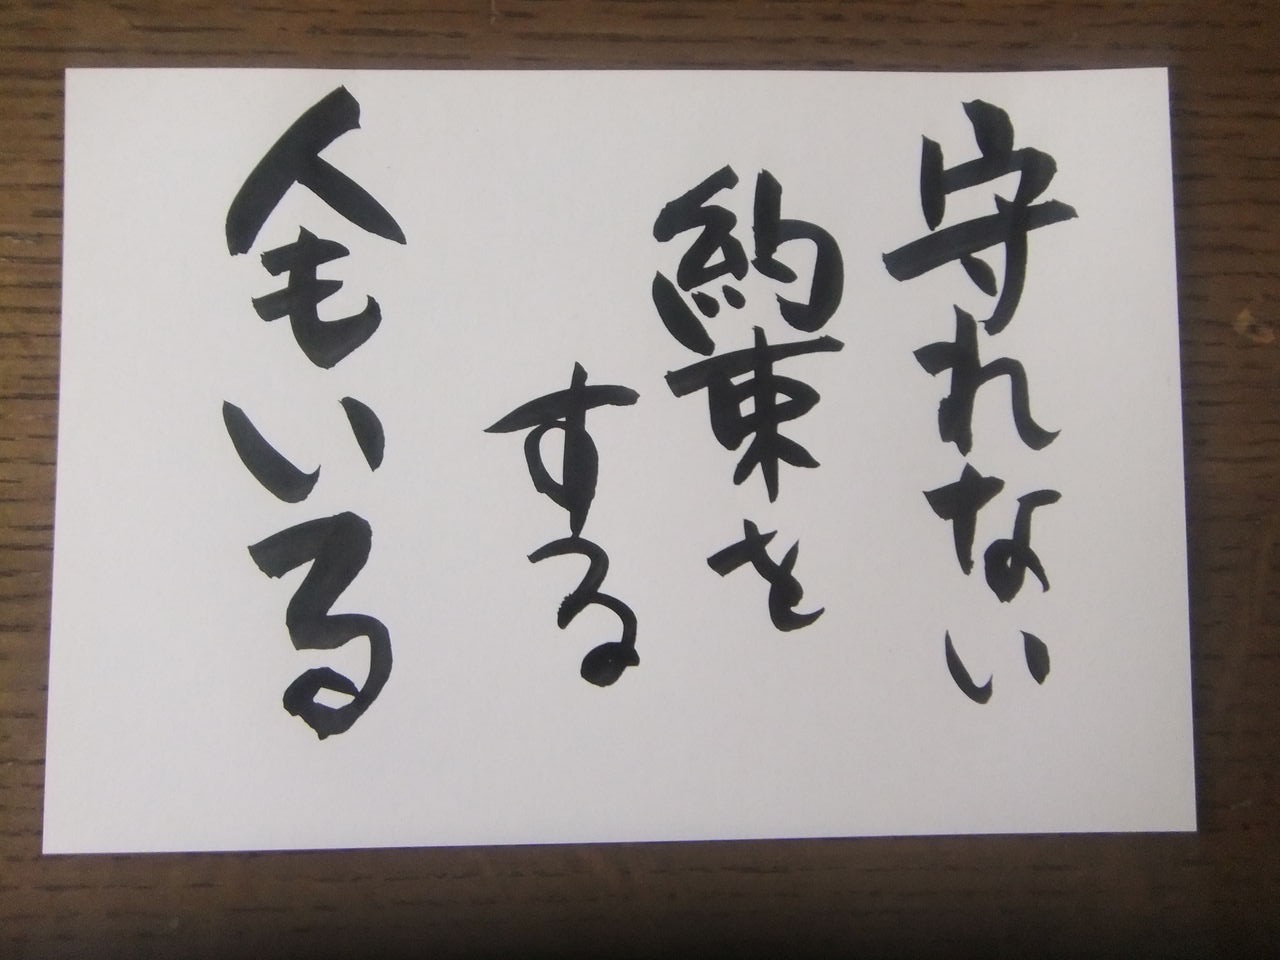 守れない
約束を
する
人もいる